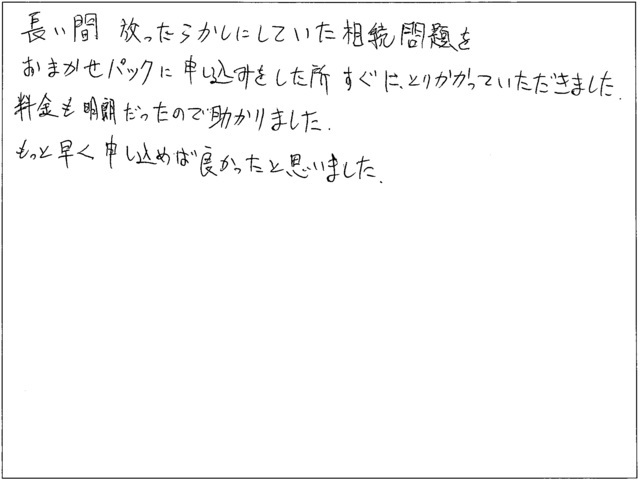 長い間 放ったらかしにしていた相続問題を
おまかせパックに申し込みをした所 すぐに、とりかかっていただきました.
料金も明朗だったので助かりました.
もっと早く申し込めば良かったと思いました.